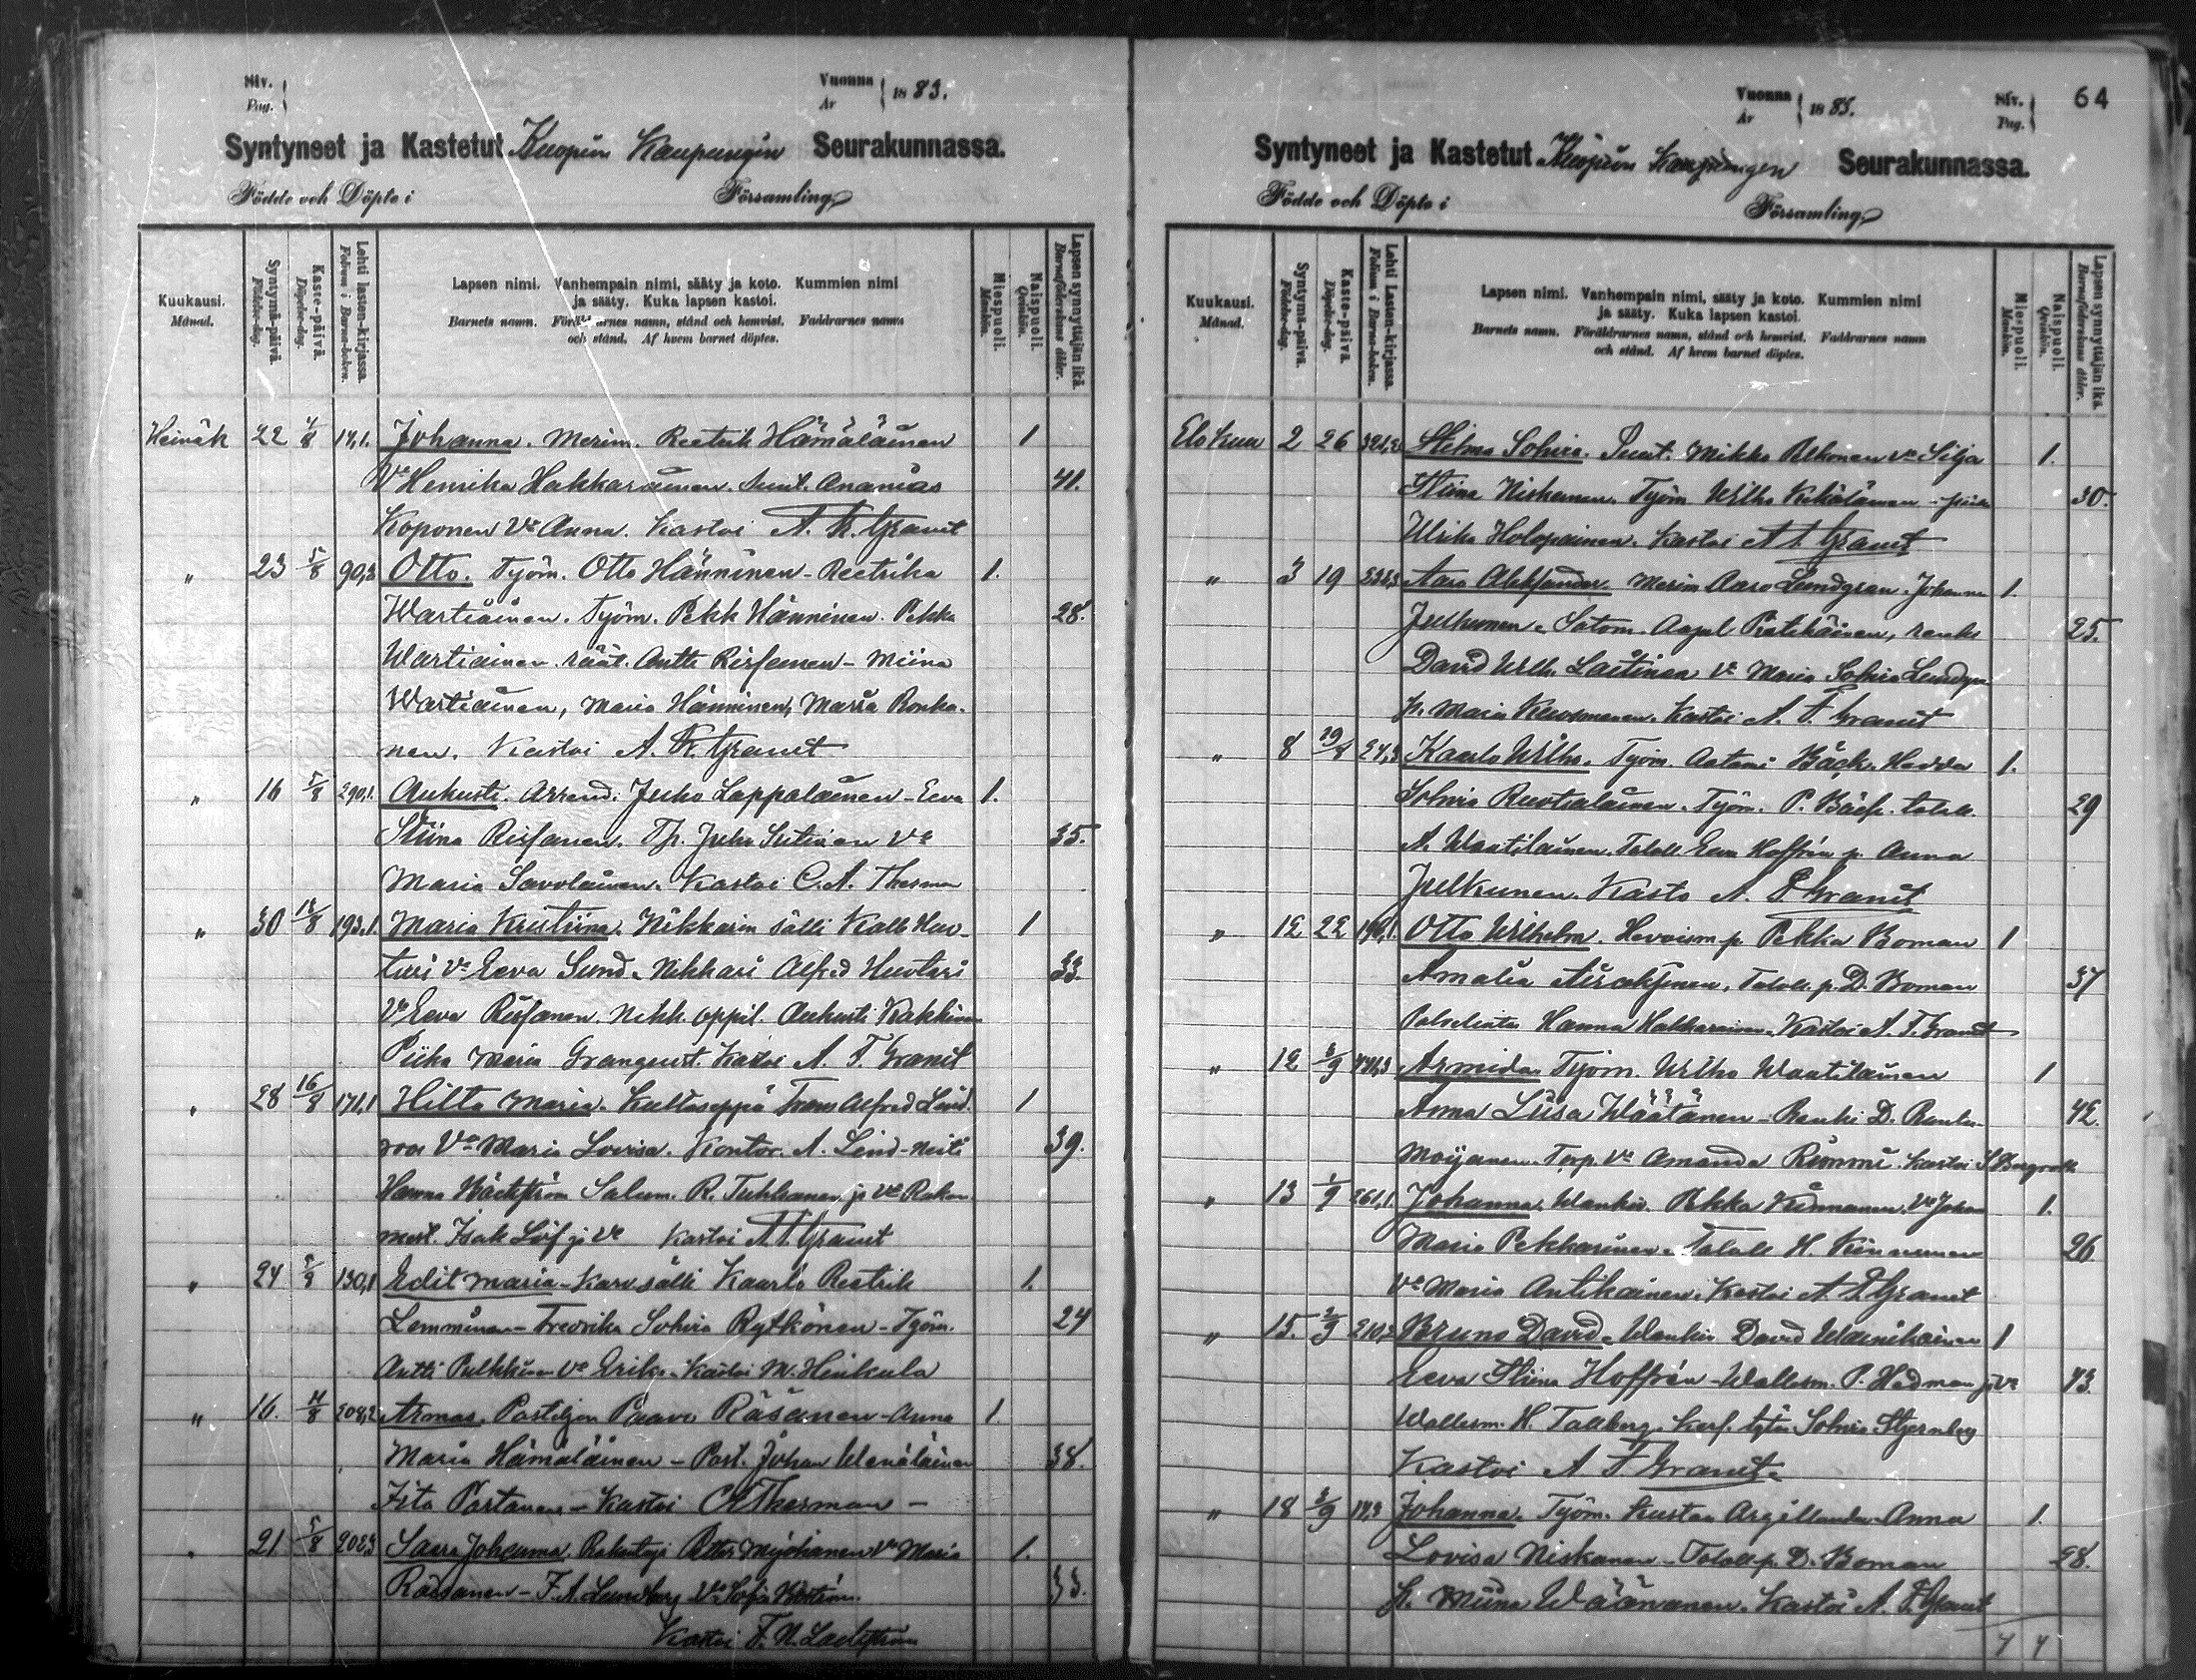 Siv.
Pag.
Vuonna
År
1883.
Syntyneet ja Kastetut Kuopion Kaupungin Seurakunnassa.
Födde och Döpte i Församling
Kuukausi.
Månad.
Syntymä-päivä.
Födelse-dag.
Kaste-päivä.
Döpelse-dag.
Lehti lasten-kirjassa.
Folium i Barna-boken.
Lapsen nimi. Vanhempain nimi, sääty ja koto. Kummien nimi
ja sääty. Kuka lapsen kastoi.
Barnets namn. Föräldrarnes namn, stånd och hemvist. Faddrarnes namn
och stånd. Af hvem barnet döptes.
Miespuoli.
Mankön.
Naispuoli.
Qvinkön.
Lapsen synnyttäjän ikä.
Barnaföderskans ålder.
Heinäk 22 4/8 14,1. Johanna. Merim. Reetrik Hämäläinen 1
Vo Henrika Hakkarainen. Ananias 41.
Koponen Vo Anna. Kastoi A. F. Granit
" 23 5/8 90,3 Otto. Työm. Otto Hänninen - Reetrika 1.
Wartiainen. Työm. Pekk Hänninen. Pekka 28.
Wartiainen. räät. Antti Rissanen - Miina
Wartiainen, Maria Hänninen, Maria Ronka-
nen. Kastoi A. F. Granit
" 16 5/8 290,1. Aukusti. Arrend. Juho Lappalainen - Eeva 1.
Stiina Rissanen. Juho Sutinen Vo 35.
Maria Savolainen. Kastoi C. A. Therman
" 30 18/8 193,1. Maria Kristiina. Nikkarin sälli Kalle Huo- 1
tari Vo Eeva Sund. Nikkari Alfred Huotari 33.
Vo Eeva Rissanen. Nikk. oppil. Aukusti Kakkinen
Piika Maria Granqvist. Kastoi A. F. Granit
" 28 16/8 171,1 Hilta Maria. Kultaseppä Frans Alfred Lind- 1
roos Vo Maria Lovisa. Kontor. A. Lind - Neiti 39.
Hanna Bäckström R. Tuhkanen ja Vo Raken
mest. Isak Löf ja Vo Kastoi A. F. Granit
" 24 5/9 130,1 Edit Maria - Karv. sälli Kaarlo Reetrik 1.
Lemminen - Fredrika Sohvia Rytkönen - Työm. 24
Antti Pulkkinen Vo Erika. Kastoi M. Heikkula
" 16. 11/8 208,2 Armas. Postiljon Paavo Räsänen - Anna 1.
Maria Hämäläinen - Post. Johan Wenäläinen 38.
Iita Partanen - Kastoi C A Therman -
" 21 5/8 202,3 Saara Johanna. Petter Myöhänen Vo Maria 1.
Räisänen - F. A. Lundberg Vo Sofia 33.
Kastoi F. N. Lackström
64
Vuonna
År
1883.
Siv.
Pag.
Syntyneet ja Kastetut Kuopion Kaupungin Seurakunnassa.
Födde och Döpte i Församling
Kuukausi.
Månad.
Syntymä-päivä.
Födelse-dag.
Kaste-päivä.
Döpelse-dag.
Lehti Lasten-kirjassa.
Folium i Barna-boken.
Lapsen nimi. Vanhempain nimi, sääty ja koto. Kummien nimi
ja sääty. Kuka lapsen kastoi.
Barnets namn. Föräldrarnes namn, stånd och hemvist. Faddrarnes namn
och stånd. Af hvem barnet döptes.
Miespuoli.
Mankön.
Naispuoli.
Qvinkön.
Lapsen synnyttäjän ikä.
Barnaföderskans ålder.
Elokuu 2 26 Selma Sohvia. Mikko Pelkonen vo Silja 1.
Stiina Niskanen. Työm Wilho 30.
Ulrika Holopainen. Kastoi A F Granit
" 3 19 Aaro Aleksander. Merim Aaro Lundgren. Johanna 1.
Julkunen. Satom. Aapel Pietikäinen, renki 25.
David Wilh. Laitinen Vo Maria Sohvia Lundgren
p. Maria Kuosmanen. Kastoi A. F. Granit
" 8 29/8 24,3 Kaarlo Wilho. Työm. Antoni Bäck. Hedda 1.
Sohvia Ruotsalainen. Työm. P. Bäck. taloll. 29
A. Waatilainen. Taloll Eeva Hoffrén p. Anna
Julkunen. Kasto A. F Granit
" 12 22 Otto Wilhelm. Hevoism. p. Pekka Boman 1
Amalia Airaksinen. Taloll. p. D. Boman 37
Palvelusta Hanna Hakkarainen. Kastoi A. F. Granit
" 12 Armida. Työm. Wilho Waatilainen 1
Anna Liisa Wäätänen - Renki D. 42.
Moijanen. Torp. Vo Amanda Rimmi. Kastoi Bergroth
" 13 1/9 261,1 Johanna. Wankiv. Pekka Kinnunen Vo Johan 1.
Maria Pekkarinen. Taloll H. Kinnunen 26
Vo Maria Antikainen. Kastoi A F Granit
" 15. 2/9 210,2 Bruno David. Wankiv David Wainikainen 1
Eeva Stiina Hoffrén - Wallesm. P. Hedman ja Vo 43.
Wallesm. H. Tallberg. tytär Sohvia Stjernberg
Kastoi A F Granit.
" 18 2/9 14,3 Johanna. Työm. Kustaa Argillander. Anna 1.
Lovisa Niskanen - Taloll p. D. Boman 28.
p. Miina Wäänänen. Kastoi A. F. Granit
4 4